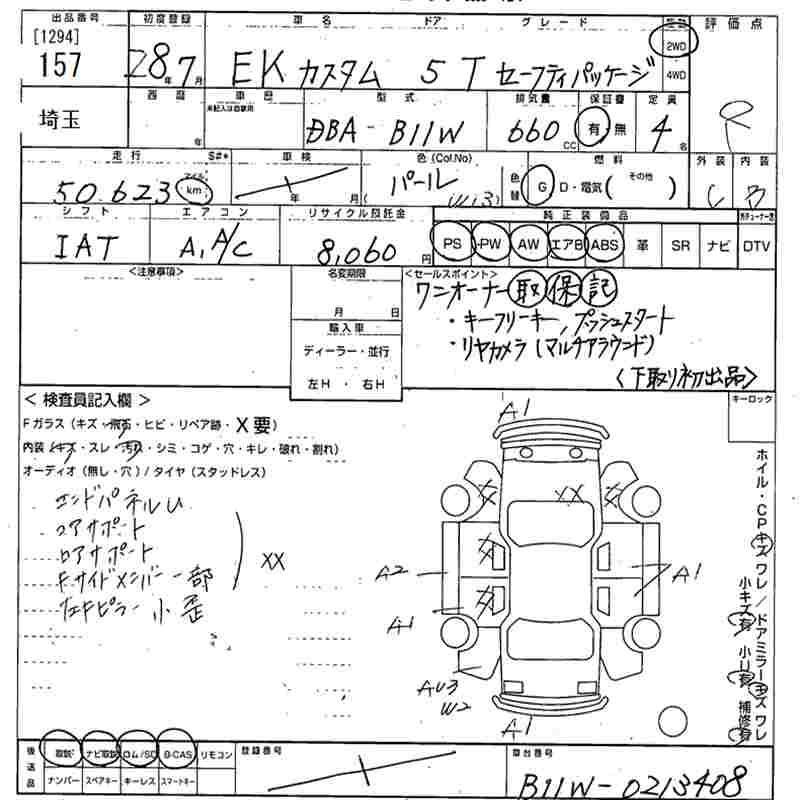 出品番号 初度登録 車名 ドア グレード 評価点
[1294]
157 28年7月 EK カスタム 5 T セーフティパッケージ 2WD 4WD
西暦 年 車歴 未記入は自家用 型式 排気量 保証書 定員 R
埼玉 DBA-B11W 660cc 有・無 4名
走行 S#* 車検 色(Col.No) 色替 燃料 外装 内装
50.623 マイル km 年 月 パール (W13) G D・電気(その他 ) C B
シフト エアコン リサイクル預託金 純正装備品
IAT A,A/C 8,060円 PS PW AW エアB ABS 革 SR ナビ DTV
<注意事項> 名変期限 <セールスポイント>
月 日 ワンオーナー 取 保 記
輸入車 ・キーフリーキー,プッシュスタート
ディーラー・並行 ・リヤカメラ(マルチアラウンド)
左H・右H <下取り初出品>
<検査員記入欄> キーロック
Fガラス(キズ・飛石・ヒビ・リペア跡・X要)
内装(キズ・スレ・汚れ・シミ・コゲ・穴・キレ・破れ・割れ)
オーディオ(無し・穴)/タイヤ(スタッドレス)
エンドパネルU
コアサポート
ロアサポート XX
Fサイドメンバー一部
左Fピラー小歪
A1
XX
A2 A1
A1
AU3
W2
A1
ホイル・CPキズ ワレ/ドアミラーキズ ワレ
小キズ有 小U有 補修有
後送品 取説 ナビ取説 ロム/SD B-CAS リモコン 登録番号 車台番号
ナンバー スペアキー キーレス スマートキー B11W-0213408